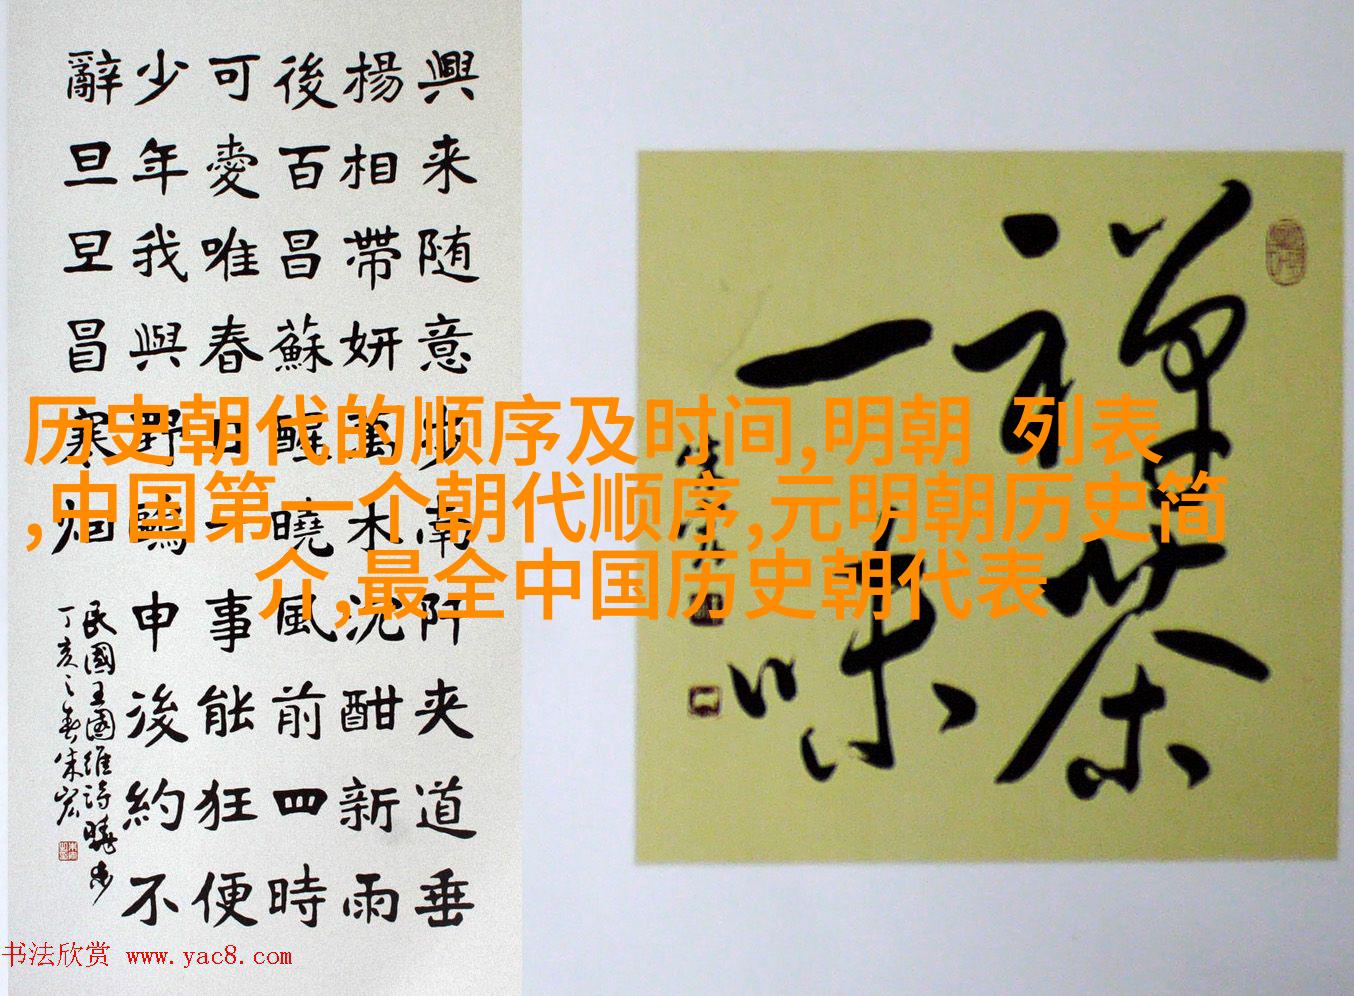 興来随意步南阡夹道垂
楊相帶妍萬木沈酣新雨
後百昌蘇醒曉風前四時
可愛唯春日一事能狂便
少年我與野鷗申後約不
辭旦旦冒寒烟
民國王國維詩曉步
丁亥之春朱宏
禅茶
一味
历史朝代的顺序及时间,明朝 列表
,中国第一个朝代顺序,元明朝历史简
介,最全中国历史朝代表
书法欣赏 www.yac8.com